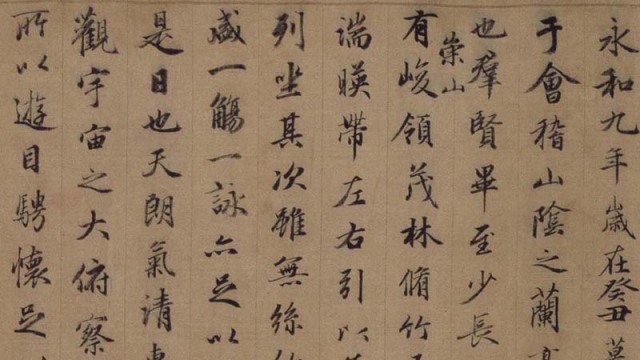 永和九年歲在癸丑
于會稽山陰之蘭
也羣賢畢至少長
有崇山峻領茂林脩竹
湍暎帶左右引以
列坐其次雖無絲
盛一觴一詠亦足以
是日也天朗氣清
觀宇宙之大俯察
所以遊目騁懷足